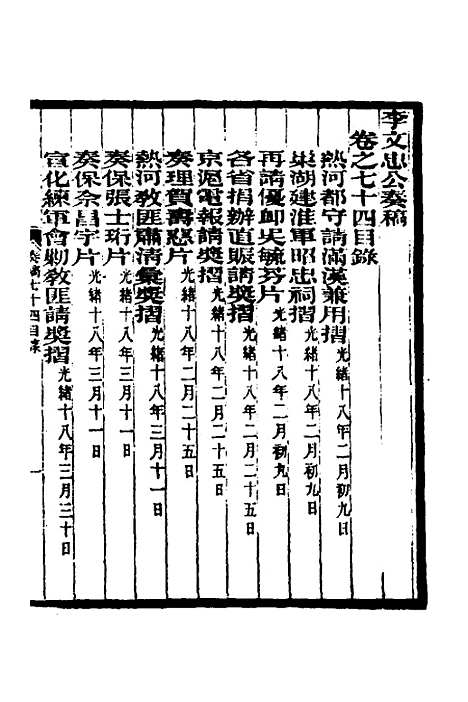 李文忠公奏稿
卷之七十四目錄
熱河都守請滿漢兼用摺光緒十八年二月初九日
巢湖建淮軍昭忠祠摺光緒十八年二月初九日
再請優卹吳毓芬片光緒十八年二月初九日
各省捐辦直賑請奬摺光緒十八年二月二十五日
京滬電報請奬摺光緒十八年二月二十五日
奏理賀壽慈片光緒十八年二月二十五日
熱河敎匪肅淸彙奬摺光緒十八年三月十一日
奏保張士珩片光緒十八年三月十一日
奏保佘昌宇片光緒十八年三月十一日
宣化練軍會剿敎匪請奬摺光緒十八年三月三十日
奏稿七十四目錄
一